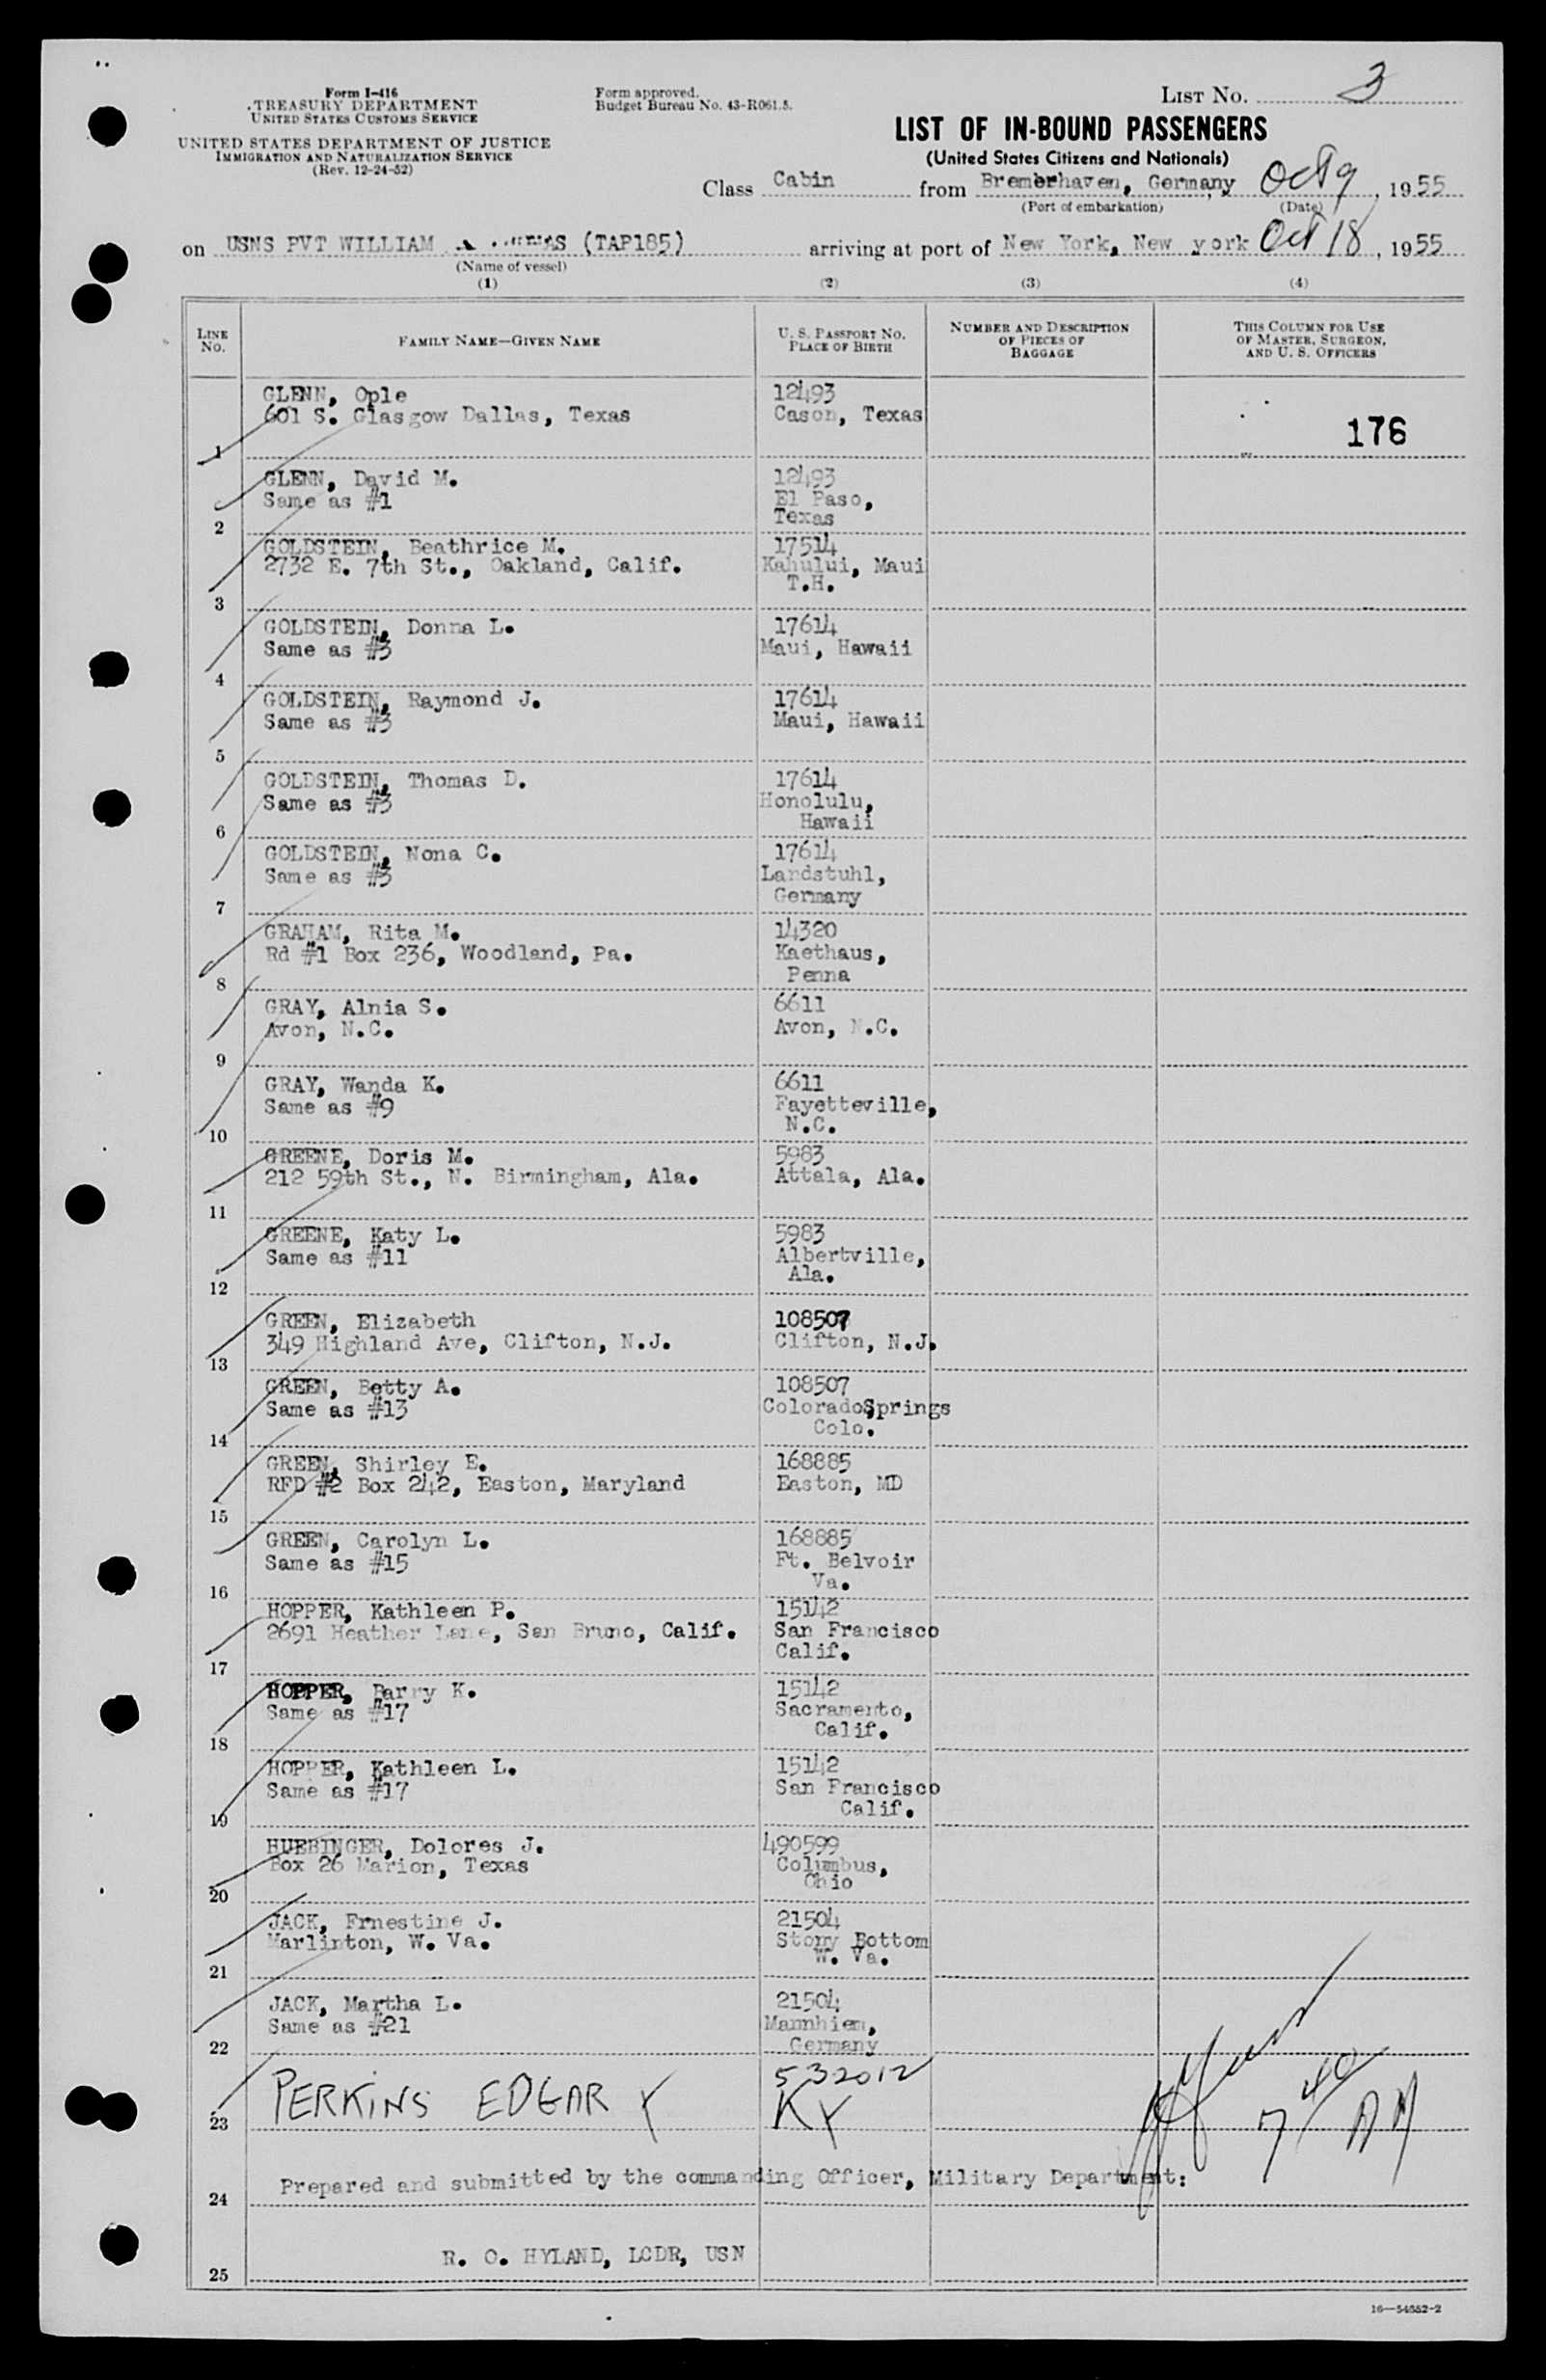 Form I-416
TREASURY DEPARTMENT
UNITED STATES CUSTOMS SERVICE
UNITED STATES DEPARTMENT OF JUSTICE
IMMIGRATION AND NATURALIZATION SERVICE
(Rev. 12-24-52)
Form approved.
Budget Bureau No. 43-R061.5.
LIST No. 3
LIST OF IN-BOUND PASSENGERS
(United States Citizens and Nationals)
Class Cabin from Bremerhaven, Germany, Oct 9, 1955
(Port of embarkation) (Date)
on USNS PVT WILLIAM (TAP185) arriving at port of New York, New york Oct 18, 1955
(Name of vessel)
(1) (2) (3) (4)
LINE No. FAMILY NAME—GIVEN NAME U. S. PASSPORT NO. PLACE OF BIRTH NUMBER AND DESCRIPTION OF PIECES OF BAGGAGE THIS COLUMN FOR USE OF MASTER, SURGEON, AND U. S. OFFICERS
GLENN, Ople 12493
601 S. Glasgow Dallas, Texas Cason, Texas
1 176
GLENN, David M. 12493
Same as #1 El Paso,
2 Texas
GOLDSTEIN, Beathrice M. 17514
2732 E. 7th St., Oakland, Calif. Kahului, Maui
3 T.H.
GOLDSTEIN, Donna L. 17614
Same as #3 Maui, Hawaii
4
GOLDSTEIN, Raymond J. 17614
Same as #3 Maui, Hawaii
5
GOLDSTEIN, Thomas D. 17614
Same as #3 Honolulu,
6 Hawaii
GOLDSTEIN, Nona C. 17614
Same as #3 Landstuhl,
7 Germany
GRAHAM, Rita M. 14320
Rd #1 Box 236, Woodland, Pa. Kaethaus,
8 Penna
GRAY, Alnia S. 6611
Avon, N.C. Avon, N.C.
9
GRAY, Wanda K. 6611
Same as #9 Fayetteville,
10 N.C.
GREENE, Doris M. 5983
212 59th St., N. Birmingham, Ala. Attala, Ala.
11
GREENE, Katy L. 5983
Same as #11 Albertville,
12 Ala.
GREEN, Elizabeth 108507
349 Highland Ave, Clifton, N.J. Clifton, N.J.
13
GREEN, Betty A. 108507
Same as #13 Colorado,Springs
14 Colo.
GREEN, Shirley E. 168885
RFD #2 Box 242, Easton, Maryland Easton, MD
15
GREEN, Carolyn L. 168885
Same as #15 Ft. Belvoir
16 Va.
HOPPER, Kathleen P. 15142
2691 Heather Lane, San Bruno, Calif. San Francisco
17 Calif.
HOPPER, Barry K. 15142
Same as #17 Sacramento,
18 Calif.
HOPPER, Kathleen L. 15142
Same as #17 San Francisco
19 Calif.
HUEBINGER, Dolores J. 490599
Box 26 Marion, Texas Columbus,
20 Ohio
JACK, Ernestine J. 21504
Marlinton, W. Va. Stony Bottom
21 W. Va.
JACK, Martha L. 21504
Same as #21 Mannhiem,
22 Germany
PERKINS EDGAR Y 532012
23 KY
7 40 AM
Prepared and submitted by the commanding Officer, Military Department:
24
R. O. HYLAND, LCDR, USN
25
16—54652-2